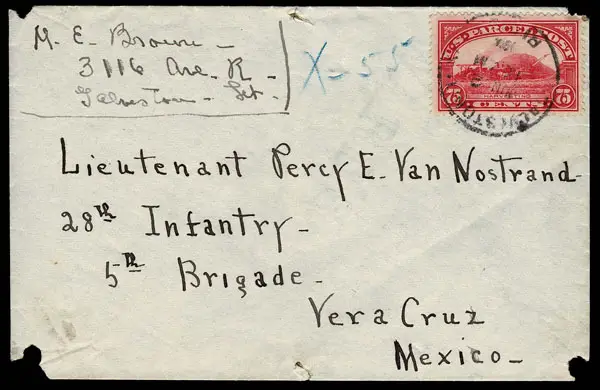 M. E. Brown -
3116 Ave. R -
Galveston -
X-55
U.S. PARCEL POST
HARVESTING
75 CENTS 75
Lieutenant Percy E. Van Nostrand -
28th Infantry -
5th Brigade -
Vera Cruz
Mexico -